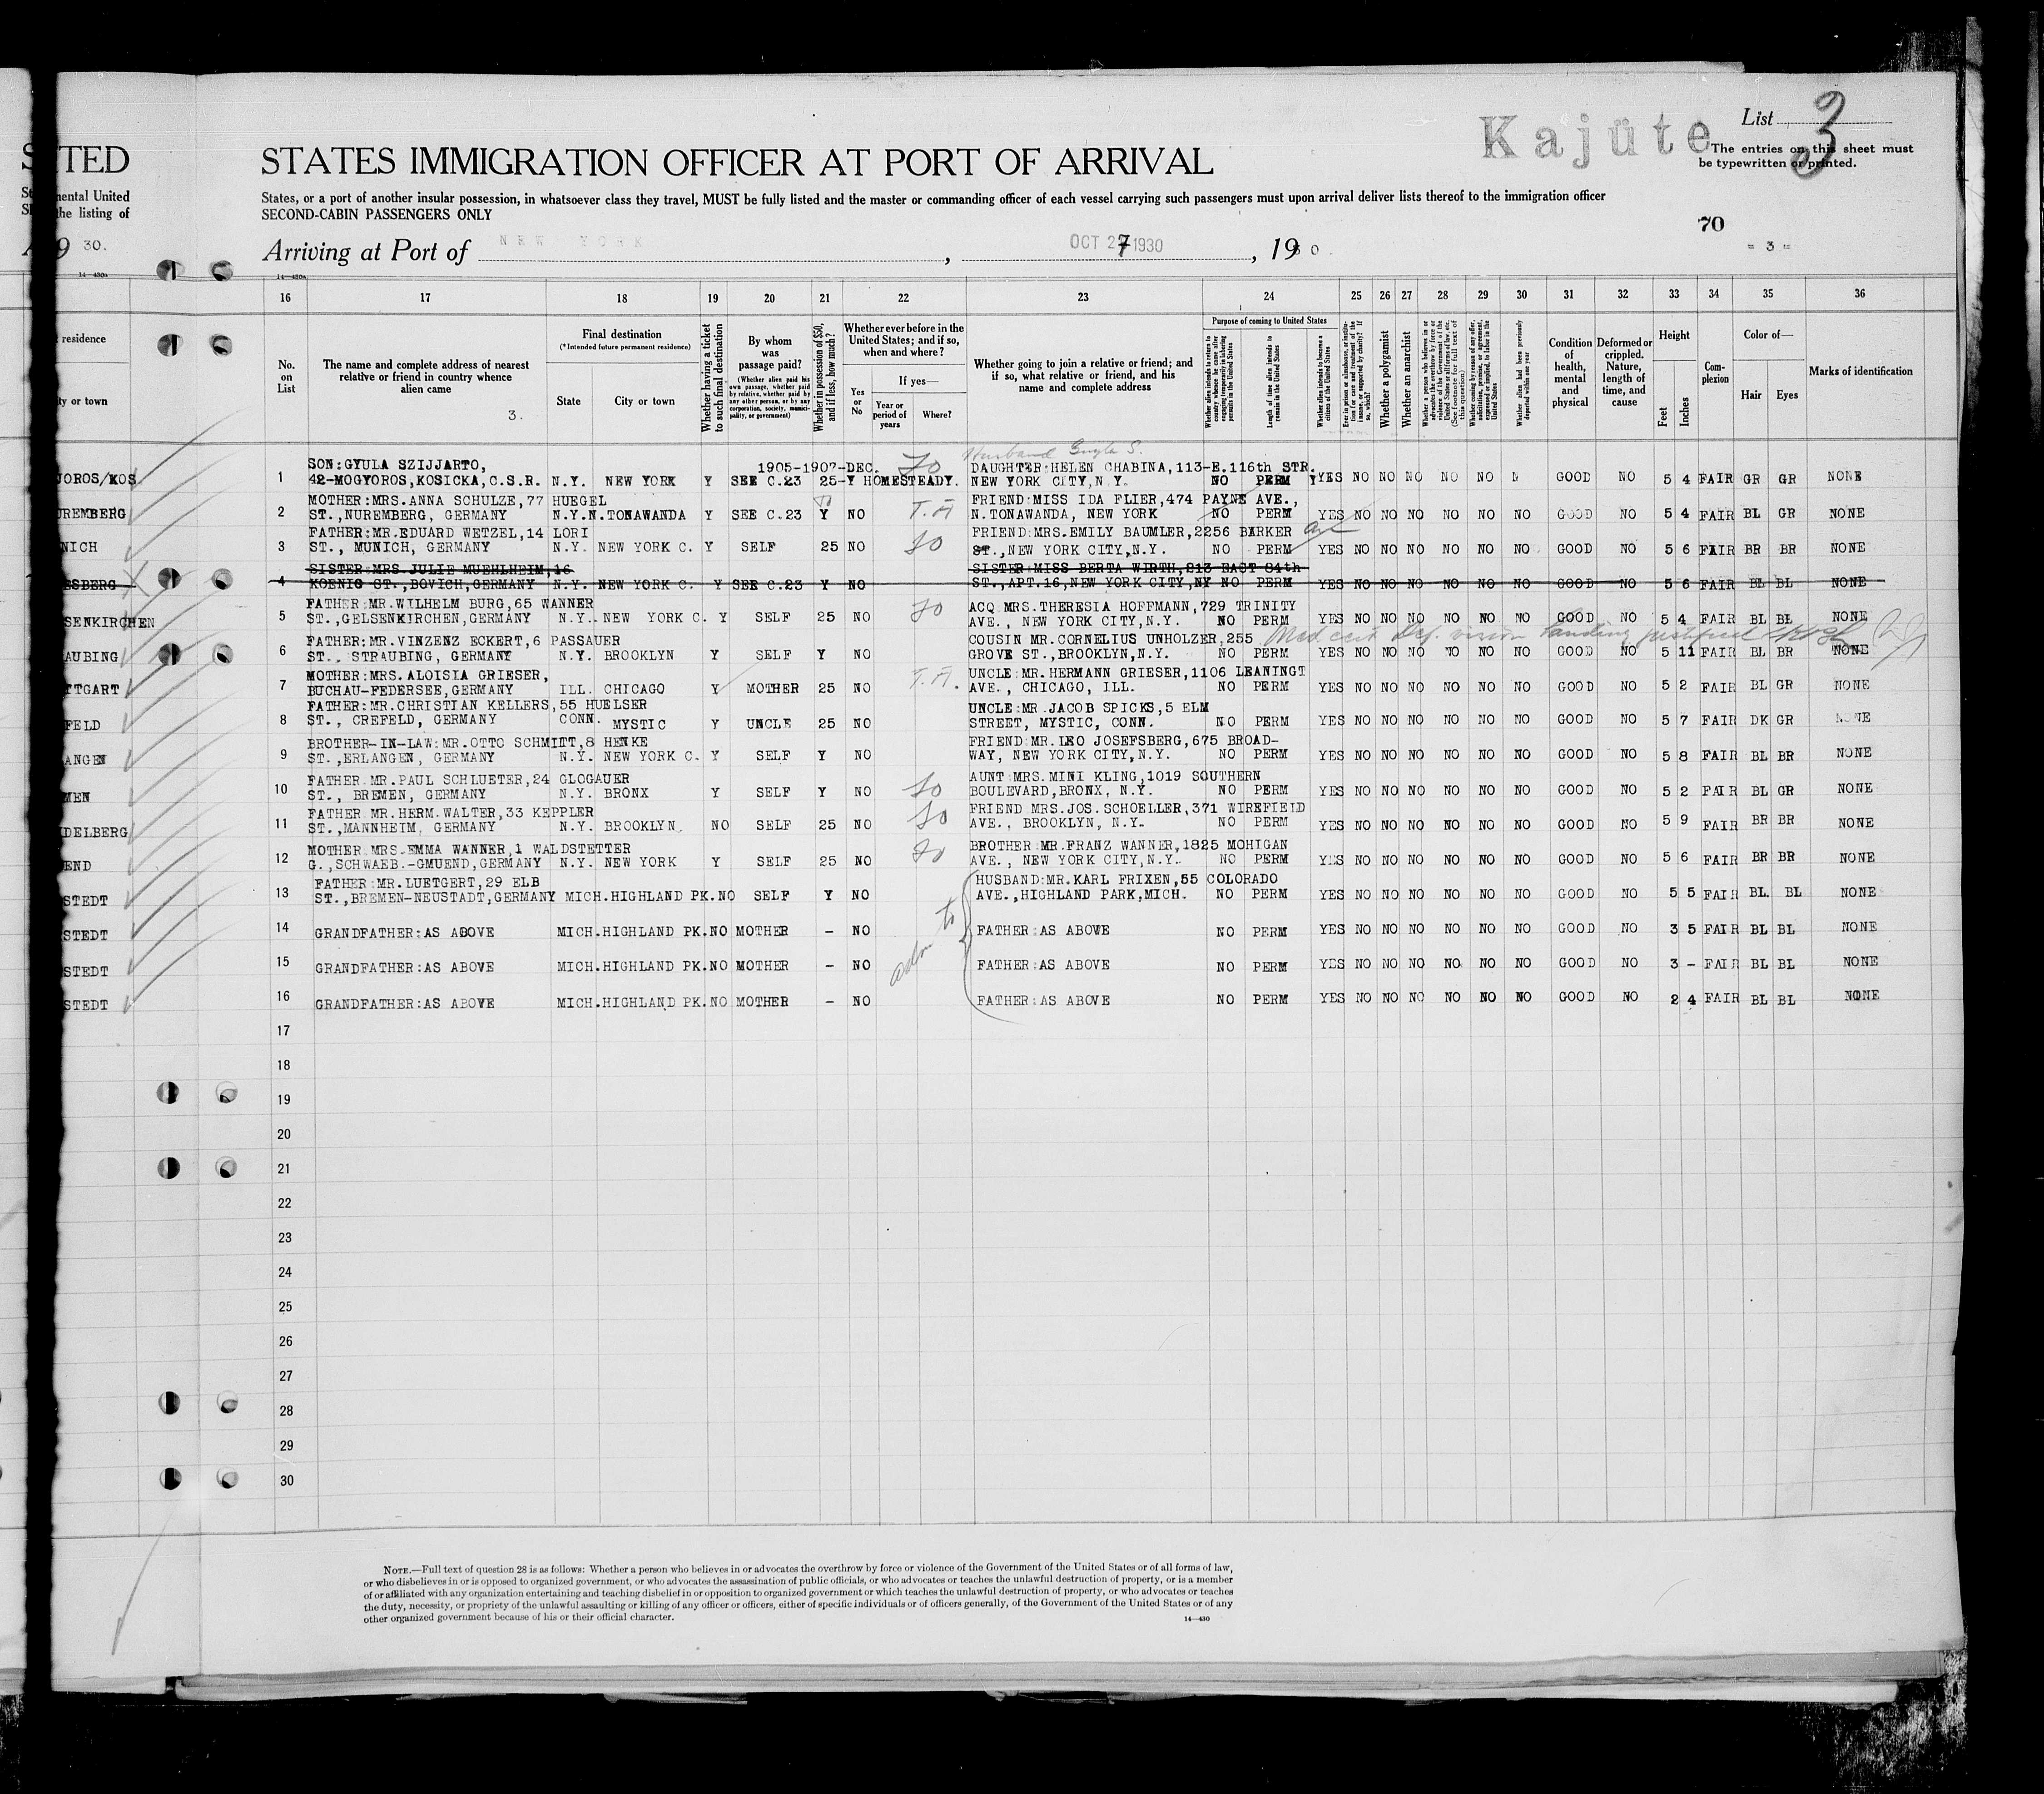 List 3
Kajüte
TED
STATES IMMIGRATION OFFICER AT PORT OF ARRIVAL
The entries on this sheet must
be typewritten or printed.
mental United
the listing of
States, or a port of another insular possession, in whatsoever class they travel, MUST be fully listed and the master or commanding officer of each vessel carrying such passengers must upon arrival deliver lists thereof to the immigration officer
SECOND-CABIN PASSENGERS ONLY
70
9 30.
Arriving at Port of NEW YORK, OCT 27 1930, 1930.
= 3 =
14—430a
16 17 18 19 20 21 22 23 24 25 26 27 28 29 30 31 32 33 34 35 36
residence
ty or town
No. on List
The name and complete address of nearest relative or friend in country whence alien came
3.
Final destination
(*Intended future permanent residence)
State
City or town
Whether having a ticket to such final destination
By whom was passage paid?
(Whether alien paid his own passage, whether paid by relative, whether paid by any other person, or by any corporation, society, municipality, or government)
Whether in possession of $50, and if less, how much?
Whether ever before in the United States; and if so, when and where?
Yes or No
If yes—
Year or period of years
Where?
Whether going to join a relative or friend; and if so, what relative or friend, and his name and complete address
Purpose of coming to United States
Length of time alien intends to remain in the United States
Whether alien intends to become a citizen of the United States
Whether a polygamist
Whether an anarchist
Condition of health, mental and physical
Deformed or crippled. Nature, length of time, and cause
Height
Feet
Inches
Complexion
Color of—
Hair
Eyes
Marks of identification
Husband Gyula S.
SON:GYULA SZIJJARTO, 1905-1907-DEC. DAUGHTER:HELEN CHABINA,113-E.116th STR.
OROS/KOS 1 42-MOGYOROS,KOSICKA,C.S.R. N.Y. NEW YORK Y SEE C.23 25-Y HOMESTEADY. NEW YORK CITY,N.Y. NO PERM YES NO NO NO NO NO N GOOD NO 5 4 FAIR GR GR NONE
MOTHER:MRS.ANNA SCHULZE,77 HUEGEL FRIEND:MISS IDA FLIER,474 PAYNE AVE.,
UREMBERG 2 ST.,NUREMBERG, GERMANY N.Y.N.TONAWANDA Y SEE C.23 Y NO T.A N.TONAWANDA, NEW YORK NO PERM YES NO NO NO NO NO NO GOOD NO 5 4 FAIR BL GR NONE
FATHER:MR.EDUARD WETZEL,14 LORI FRIEND:MRS.EMILY BAUMLER,2256 BARKER ave
NICH 3 ST., MUNICH, GERMANY N.Y. NEW YORK C. Y SELF 25 NO ST.,NEW YORK CITY,N.Y. NO PERM YES NO NO NO NO NO NO GOOD NO 5 6 FAIR BR BR NONE
SISTER:MRS JULIE MUEHLHEIM,16 SISTER:MISS BERTA WIRTH,213 EAST 84th
ESBERG 4 KOENIG ST.,BOVICH,GERMANY N.Y. NEW YORK C. Y SEE C.23 Y NO ST.,APT.16,NEW YORK CITY,NY NO PERM YES NO NO NO NO NO NO GOOD NO 5 6 FAIR BL BL NONE
FATHER:MR.WILHELM BURG,65 WANNER ACQ:MRS.THERESIA HOFFMANN,729 TRINITY
SENKIRCHEN 5 ST.,GELSENKIRCHEN,GERMANY N.Y. NEW YORK C. Y SELF 25 NO AVE., NEW YORK CITY,N.Y. NO PERM YES NO NO NO NO NO NO GOOD NO 5 4 FAIR BL BL NONE
FATHER:MR.VINZENZ ECKERT,6 PASSAUER COUSIN MR.CORNELIUS UNHOLZER,255 Med cert Def. vision Landing justified
AUBING 6 ST., STRAUBING, GERMANY N.Y. BROOKLYN Y SELF Y NO GROVE ST.,BROOKLYN,N.Y. NO PERM YES NO NO NO NO NO NO GOOD NO 5 11 FAIR BL BR NONE
MOTHER:MRS.ALOISIA GRIESER, UNCLE:MR.HERMANN GRIESER,1106 LEANINGT
TTGART 7 BUCHAU-FEDERSEE,GERMANY ILL. CHICAGO Y MOTHER 25 NO T.A. AVE., CHICAGO, ILL. NO PERM YES NO NO NO NO NO NO GOOD NO 5 2 FAIR BL GR NONE
FATHER:MR.CHRISTIAN KELLERS,55 HUELSER UNCLE:MR.JACOB SPICKS,5 ELM
FELD 8 ST., CREFELD, GERMANY CONN. MYSTIC Y UNCLE 25 NO STREET, MYSTIC, CONN. NO PERM YES NO NO NO NO NO NO GOOD NO 5 7 FAIR DK GR NONE
BROTHER-IN-LAW:MR.OTTO SCHMITT,8 HENKE FRIEND:MR.LEO JOSEFSBERG,675 BROAD-
ANGEN 9 ST.,ERLANGEN, GERMANY N.Y. NEW YORK C. Y SELF Y NO WAY, NEW YORK CITY,N.Y. NO PERM YES NO NO NO NO NO NO GOOD NO 5 8 FAIR BL BR NONE
FATHER:MR.PAUL SCHLUETER,24 GLOGAUER AUNT:MRS.MINI KLING,1019 SOUTHERN
MEN 10 ST., BREMEN, GERMANY N.Y. BRONX Y SELF Y NO BOULEVARD,BRONX, N.Y. NO PERM YES NO NO NO NO NO NO GOOD NO 5 2 FAIR BL GR NONE
FATHER:MR.HERM.WALTER,33 KEPPLER FRIEND MRS.JOS.SCHOELLER,371 WIREFIELD
DELBERG 11 ST.,MANNHEIM, GERMANY N.Y. BROOKLYN NO SELF 25 NO AVE., BROOKLYN, N.Y. NO PERM YES NO NO NO NO NO NO GOOD NO 5 9 FAIR BR BR NONE
MOTHER:MRS.EMMA WANNER,1 WALDSTETTER BROTHER:MR.FRANZ WANNER,1825 MOHIGAN
END 12 G.,SCHWAEB.-GMUEND,GERMANY N.Y. NEW YORK Y SELF 25 NO AVE., NEW YORK CITY,N.Y. NO PERM YES NO NO NO NO NO NO GOOD NO 5 6 FAIR BR BR NONE
FATHER:MR.LUETGERT,29 ELB HUSBAND:MR.KARL FRIXEN,55 COLORADO
STEDT 13 ST.,BREMEN-NEUSTADT,GERMANY MICH.HIGHLAND PK.NO SELF Y NO AVE.,HIGHLAND PARK,MICH. NO PERM YES NO NO NO NO NO NO GOOD NO 5 5 FAIR BL. BL NONE
adm to
STEDT 14 GRANDFATHER:AS ABOVE MICH.HIGHLAND PK.NO MOTHER - NO FATHER:AS ABOVE NO PERM YES NO NO NO NO NO NO GOOD NO 3 5 FAIR BL BL NONE
STEDT 15 GRANDFATHER:AS ABOVE MICH.HIGHLAND PK.NO MOTHER - NO FATHER:AS ABOVE NO PERM YES NO NO NO NO NO NO GOOD NO 3 - FAIR BL BL NONE
STEDT 16 GRANDFATHER:AS ABOVE MICH.HIGHLAND PK.NO MOTHER - NO FATHER:AS ABOVE NO PERM YES NO NO NO NO NO NO GOOD NO 2 4 FAIR BL BL NONE
17
18
19
20
21
22
23
24
25
26
27
28
29
30
NOTE.—Full text of question 28 is as follows: Whether a person who believes in or advocates the overthrow by force or violence of the Government of the United States or of all forms of law,
or who disbelieves in or is opposed to organized government, or who advocates the assassination of public officials, or who advocates or teaches the unlawful destruction of property, or is a member
of or affiliated with any organization entertaining and teaching disbelief in or opposition to organized government or which teaches the unlawful destruction of property, or who advocates or teaches
the duty, necessity, or propriety of the unlawful assaulting or killing of any officer or officers, either of specific individuals or of officers generally, of the Government of the United States or of any
other organized government because of his or their official character.
14—430